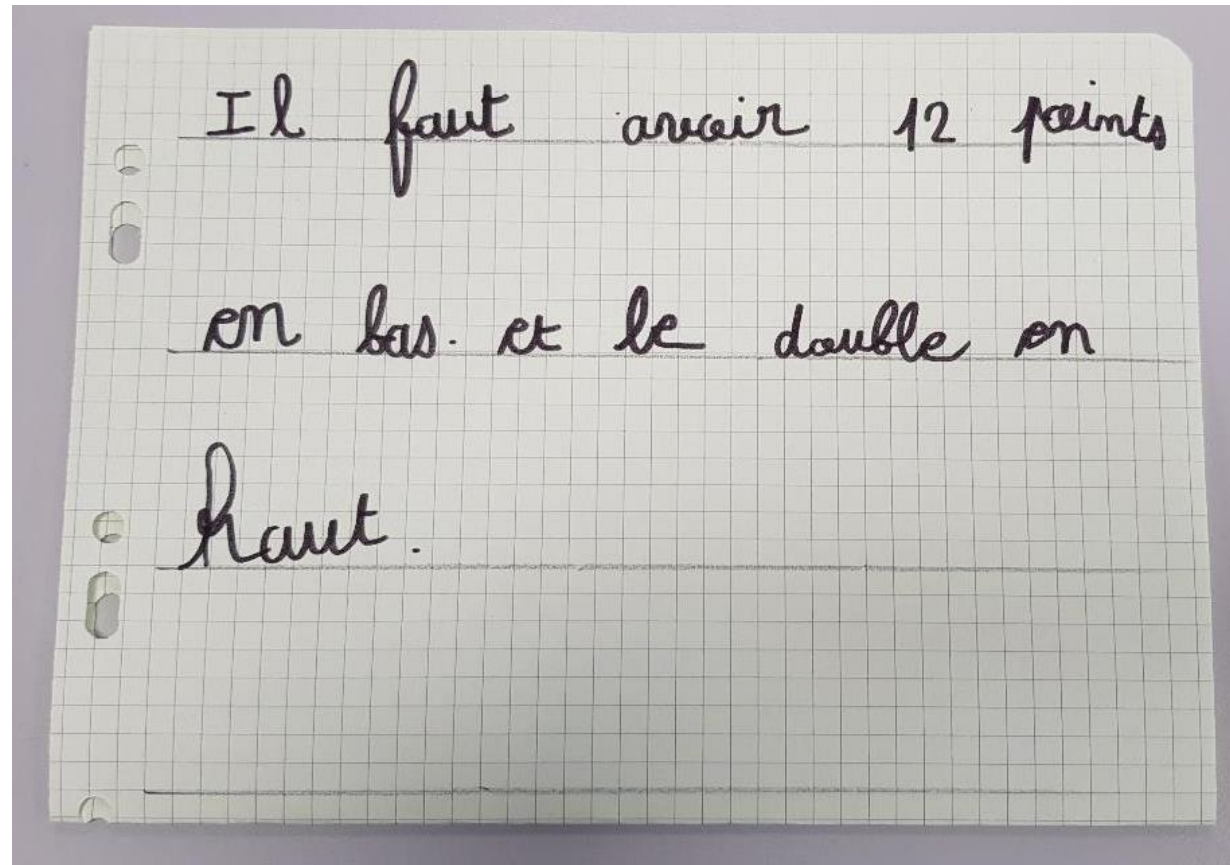 Il faut avoir 12 points
en bas. et le double en
haut.